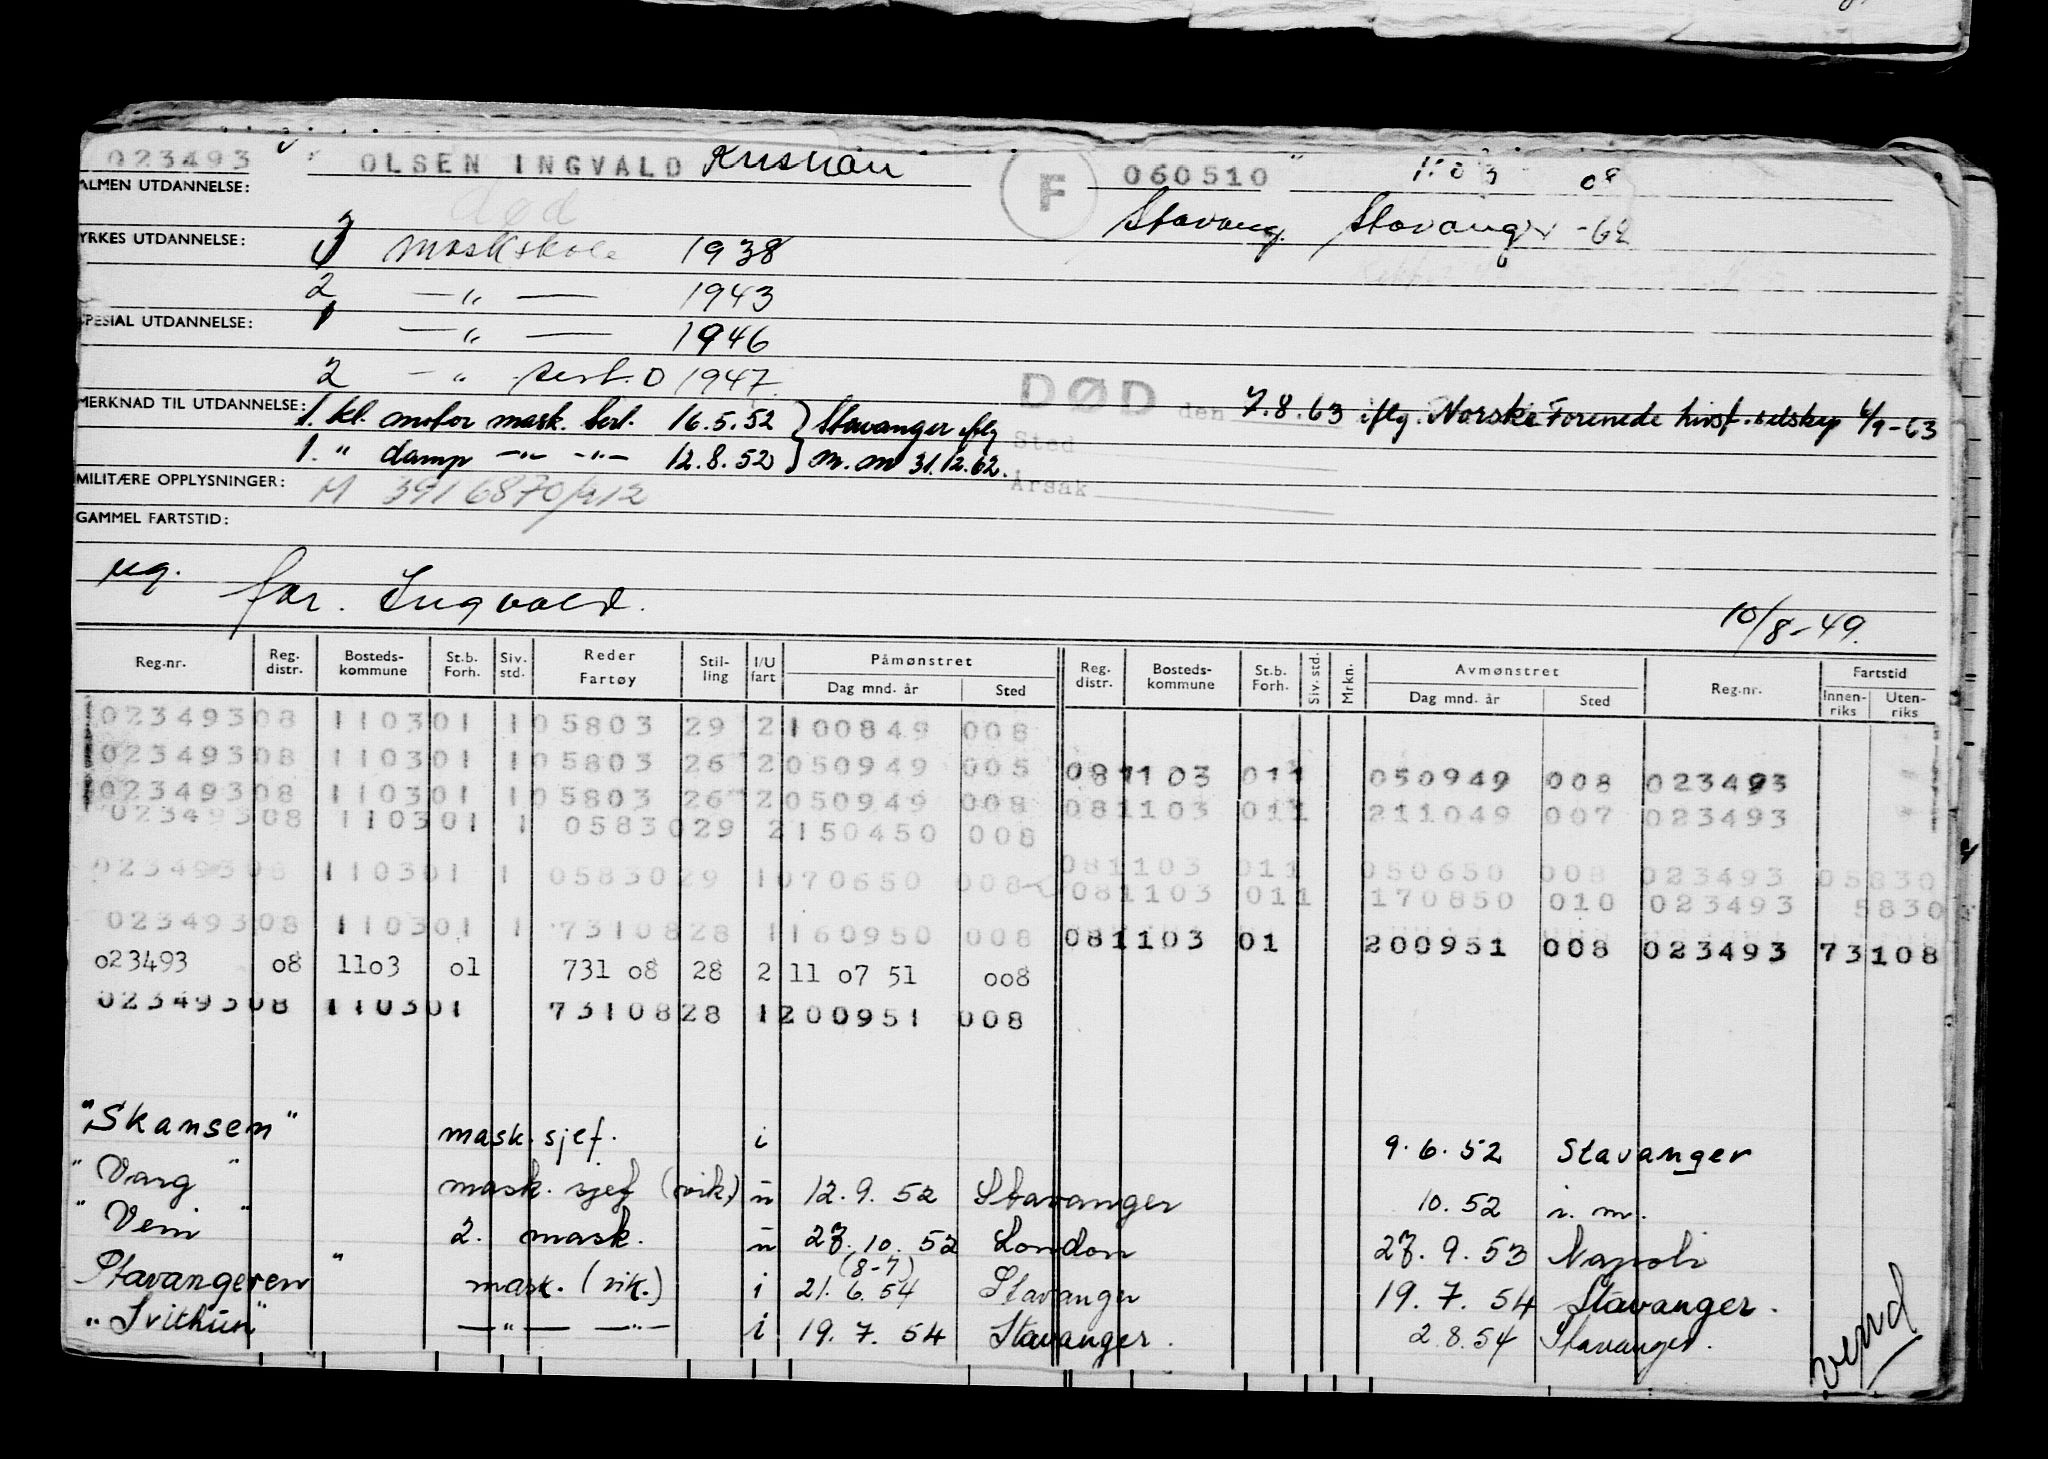 023493 OLSEN INGVALD Kristian F 060510 1103 08
ALMEN UTDANNELSE: Død Stavang. Stavanger -62
YRKES UTDANNELSE: 3 maskskole 1938
2 —"— 1943
SPESIAL UTDANNELSE: 1 —"— 1946
2 —"— sert. D 1947
MERKNAD TIL UTDANNELSE: 1. kl. motor mask. sert. 16.5.52 } Stavanger iflg
1. " damp —"— —"— 12.8.52 } m.m 31.12.62.
DØD den 7.8.63 iflg. Norske Forenede livsf. selskap 6/9-63
Sted
Årsak
MILITÆRE OPPLYSNINGER: M 3916870/412
GAMMEL FARTSTID:
ug. far. Ingvald.
10/8-49.
Reg.nr. Reg. distr. Bosteds-kommune St.b. Forh. Siv. std. Reder Fartøy Stil-ling I/U fart Påmønstret Dag mnd. år Sted Reg. distr. Bosteds-kommune St.b. Forh. Siv. std. Mrkn. Avmønstret Dag mnd. år Sted Reg.nr. Fartstid Innen-riks Uten-riks
023493 08 1103 01 1 05803 29 2 100849 008
023493 08 1103 01 1 05803 26 2 050949 005 08 1103 01 1 050949 008 023493
023493 08 1103 01 1 05803 26 2 050949 008 08 1103 01 1 211049 007 023493
023493 08 1103 01 1 05830 29 2 150450 008
08 1103 01 1 050650 008 023493 05830
023493 08 1103 01 1 05830 29 1 070650 008 08 1103 01 1 170850 010 023493 5830
023493 08 1103 01 1 73108 28 1 160950 008 08 1103 01 200951 008 023493 73108
023493 08 1103 01 731 08 28 2 11 07 51 008
023493 08 1103 01 73108 28 1 200951 008
"Skansen" mask. sjef. i 9.6.52 Stavanger
"Varg" mask. sjef (vik.) u 12.9.52 Stavanger 10.52 i. m.
"Veni" 2. mask. u 23.10.52 London 23.9.53 Napoli
(8-7)
Stavangeren" mask. (vik.) i 21.6.54 Stavanger 19.7.54 Stavanger.
"Svithun" —"— —"— i 19.7.54 Stavanger. 2.8.54 Stavanger.
vend